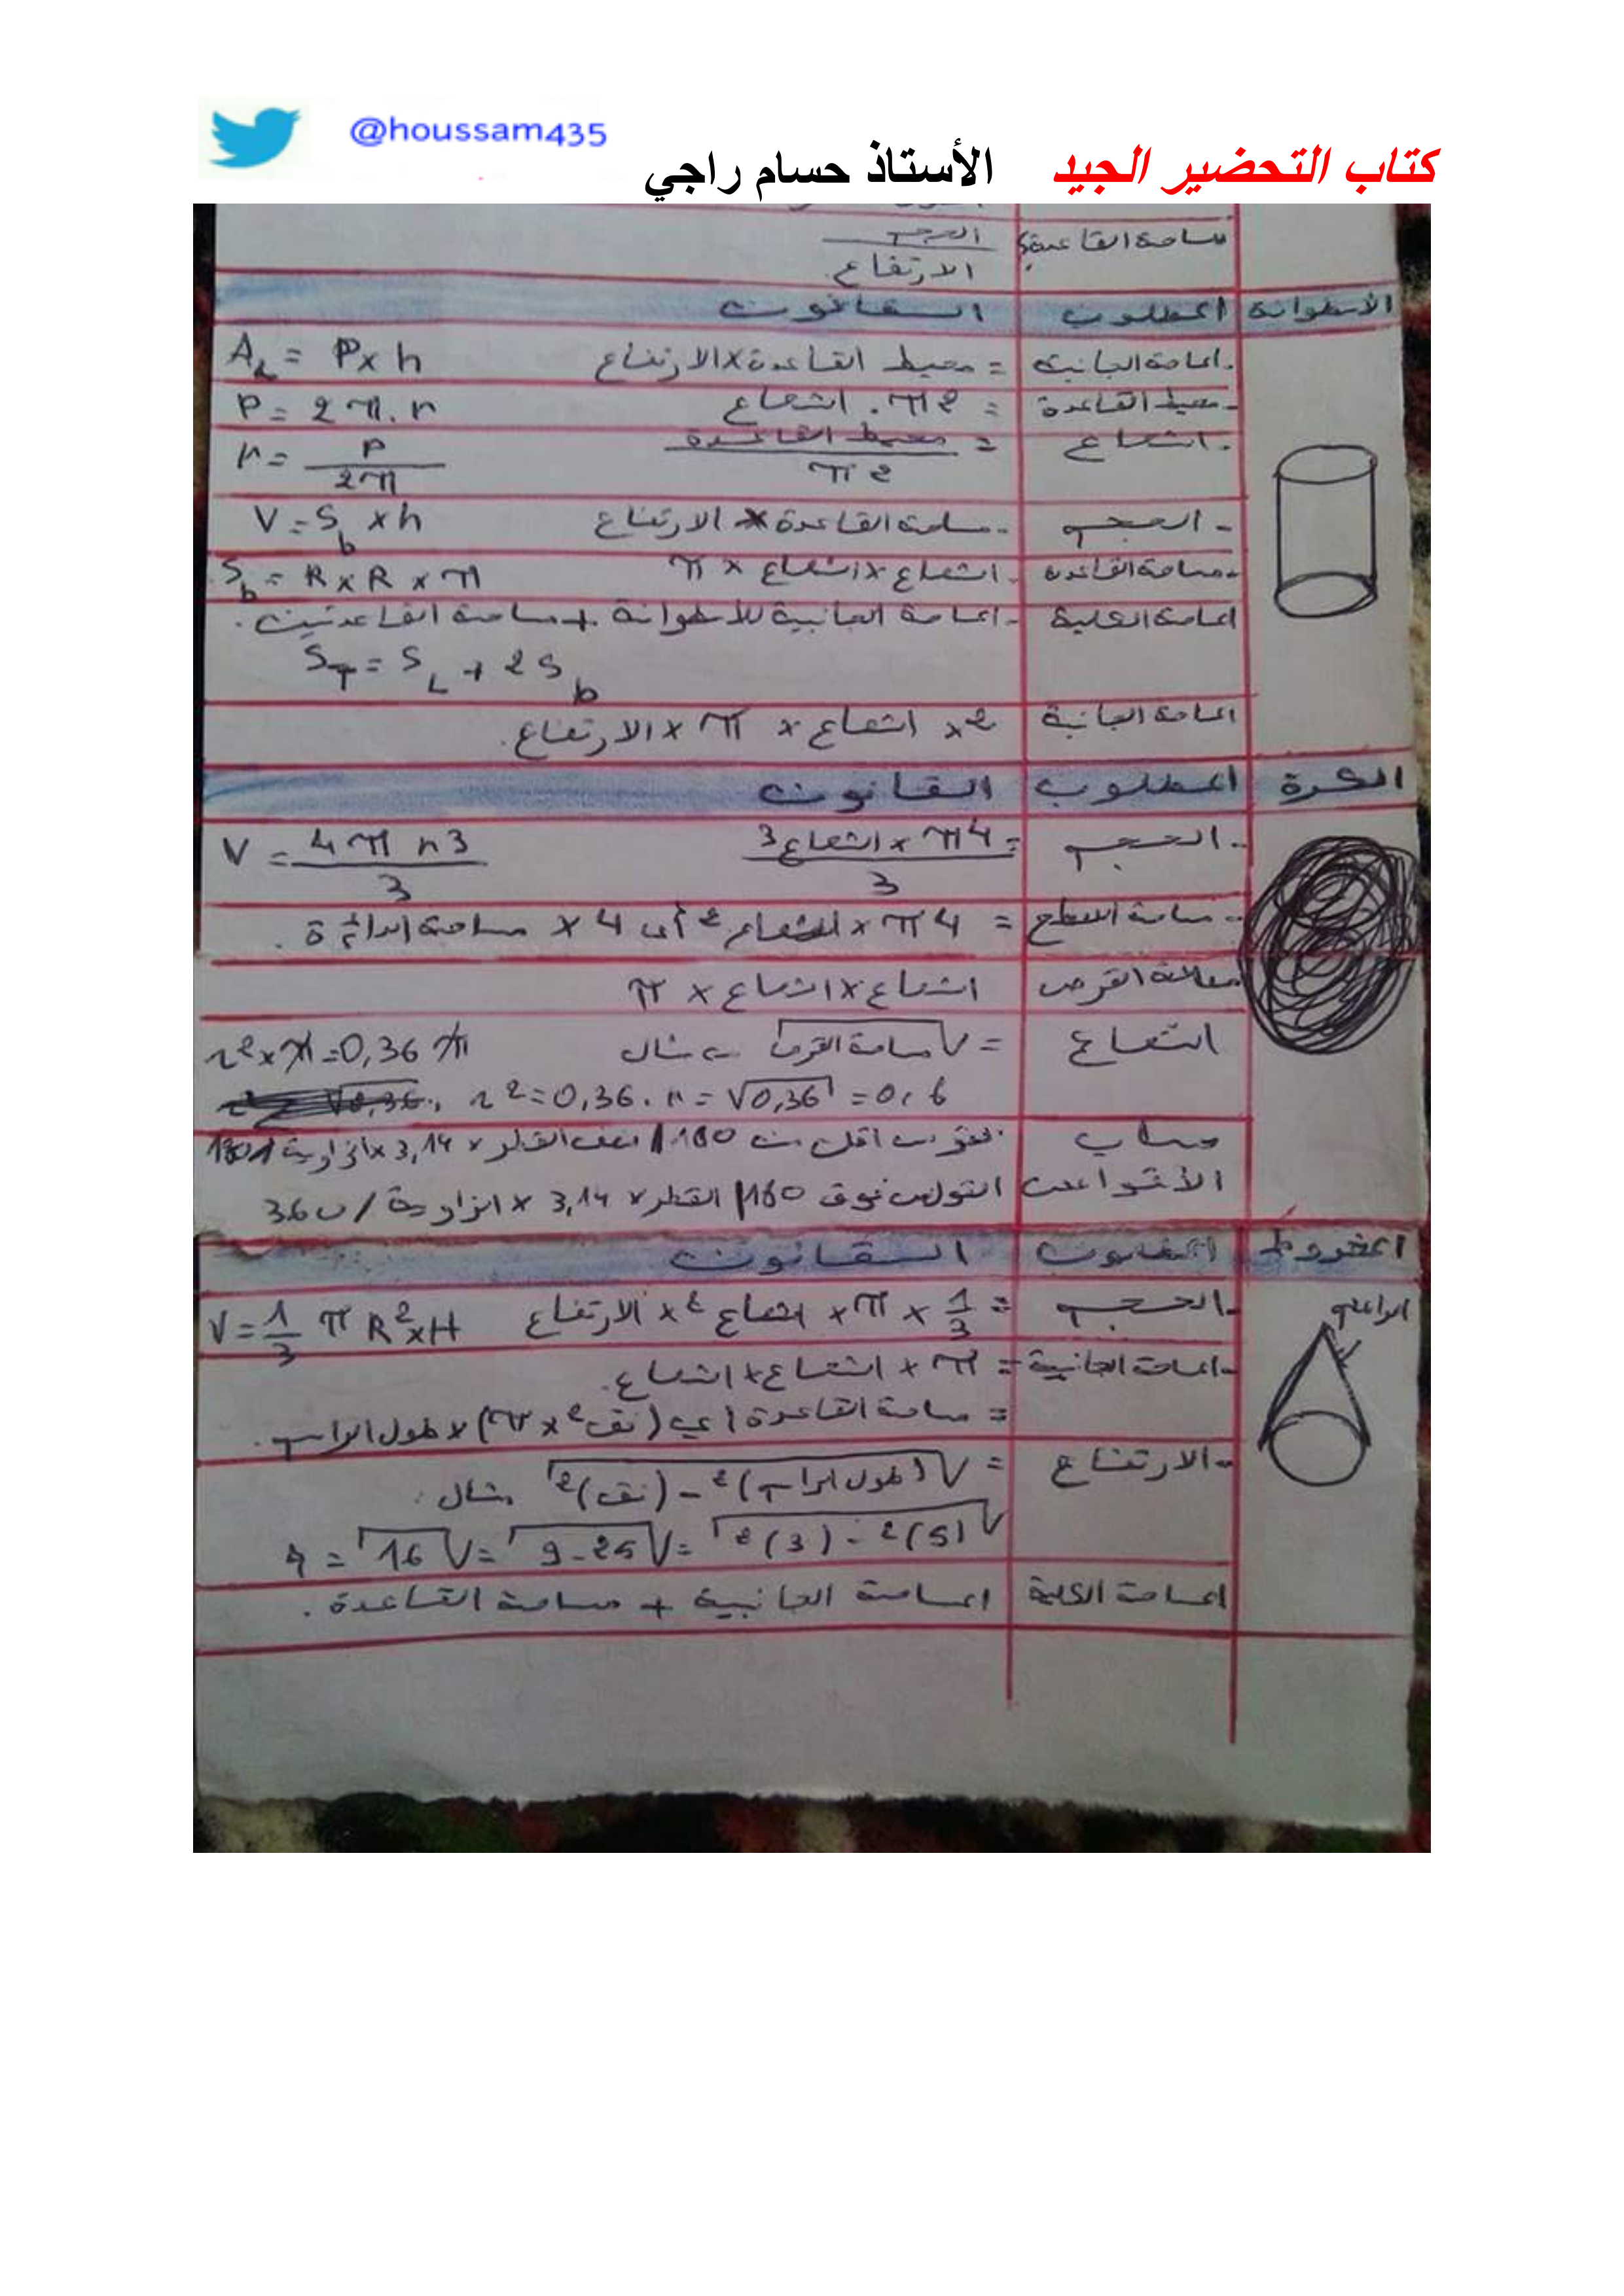 @houssam435
كتاب التحضير الجيد الأستاذ حسام راجي
مساحة القاعدة الحجم
الارتفاع
الأسطوانة المطلوب القانون
المساحة الجانبية = محيط القاعدة x الارتفاع A_L = P x h
- محيط القاعدة = 2π . الشعاع P = 2π . r
- الشعاع = محيط القاعدة / 2π r = P / 2π
- الحجم - مساحة القاعدة x الارتفاع V = S_b x h
- مساحة القاعدة - الشعاع x الشعاع x π S_b = R x R x π
المساحة الكلية - المساحة الجانبية للأسطوانة + مساحة القاعدتين .
S_T = S_L + 2S_b
المساحة الجانبية 2 x الشعاع x π x الارتفاع .
الكرة المطلوب القانون
- الحجم = 4π x الشعاع3 / 3 V = 4πr3 / 3
- مساحة السطح = 4π x الشعاع2 أي 4 x مساحة الدائرة .
القرص الشعاع x الشعاع x π
الشعاع = √مساحة القرص مثال r2 x π = 0,36 π
r2 = 0,36 . r = √0,36 = 0,6
حساب أقل من 180 / نصف القطر x 3,14 x الزاوية / 180
الأقواس فوق 180 / القطر x 3,14 x الزاوية / 360
المخروط المطلوب القانون
- الحجم = 1/3 x π x الشعاع2 x الارتفاع V = 1/3 π R2 x H
- المساحة الجانبية = π x الشعاع x الشعاع .
= مساحة القاعدة أي (نق2 x π) x طول الراسم .
- الارتفاع = √(طول الراسم)2 - (نق)2 مثال .
√(5)2 - (3)2 = √25 - 9 = √16 = 4
المساحة الكلية المساحة الجانبية + مساحة القاعدة .